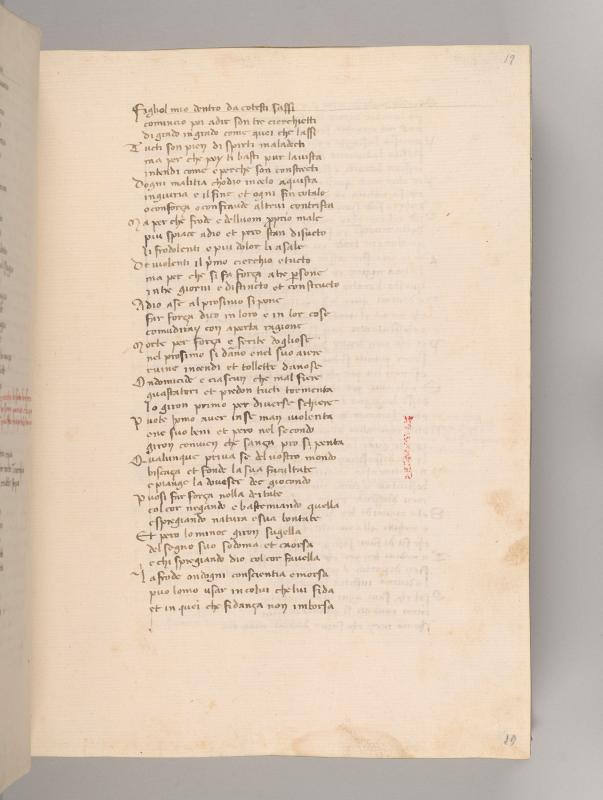 19
Figliol mio dentro da cotesti sassi
comincio poi adir son tre cierchietti
di grado ingrado come quei che lassi
Tucti son pien di spirti maladecti
ma per che poi ti basti pur lauista
intendi come e perche son constrecti
Dogni malitia chodio incielo aquista
ingiuria e il fine et ogni fin cotale
o conforça o confraude altrui contrista
Ma per che frode e delluom pprio male
piu spiace adio et pero stan disucto
li frodolenti e piu dolor li asale
De uiolenti il pmo cierchio e tucto
ma per che si fa força a tre psone
in tre gironi e distincto et constructo
Adio ase al prosimo si pone
far força dico in loro e in lor cose
comudirai con aperta ragione
Morte per força e ferite dogliose
nel prosimo si dano e nel suo auere
ruine incendi et tollette danose
Ondomicide e ciascun che mal fiere
guastatori et predon tucti tormenta
lo giron primo per diuerse schiere
Puote homo auer in se man uiolenta
e ne suo beni et pero nel secondo
giron conuien che sança pro si penta
Qualunque priua se del uostro mondo
biscaça et fonde la sua facultate
e piange la doueser dee giocondo
Puosi far força nella deitate
col cor negando e bastemiando quella
e spregiando natura e sua bontate
Et pero lo minor giron sugella
del segno suo sodoma et caorsa
e chi spregiando dio col cor fauella
La frode ondogni conscientia e morsa
puo lomo usar in colui che lui fida
et in quei che fidança non imborsa
19